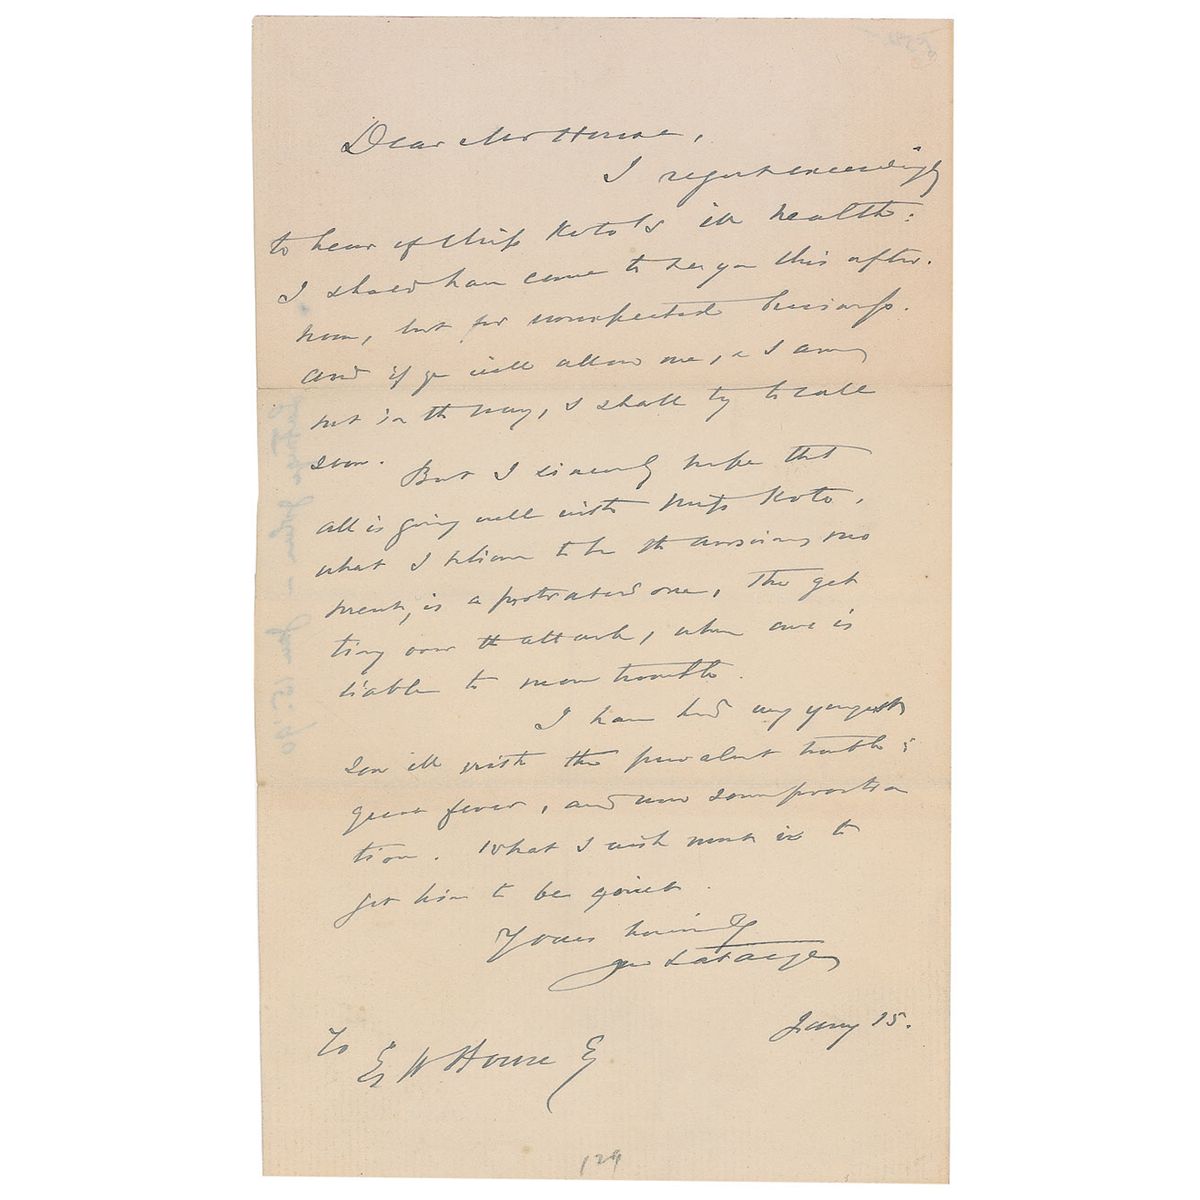 Dear Mr House,
I regret exceedingly
to hear of Miss Koto's ill health:
I should have come to see you this after.
noon, but for unexpected business.
And if you will allow me, & I am
not in the way, I shall try to call
soon.
But I sincerely hope that
all is going well with Miss Koto,
what I believe to be the anxious mo
ment, is a protracted one, The get
ting over the attack, when one is
liable to more trouble.
I have had my youngest
son ill with the prevalent trouble;
great fever, and now some prostra
tion. What I wish most is to
get him to be quiet.
Yours
Jno LaFarge
Jany 15.
To
E W House Esq
129